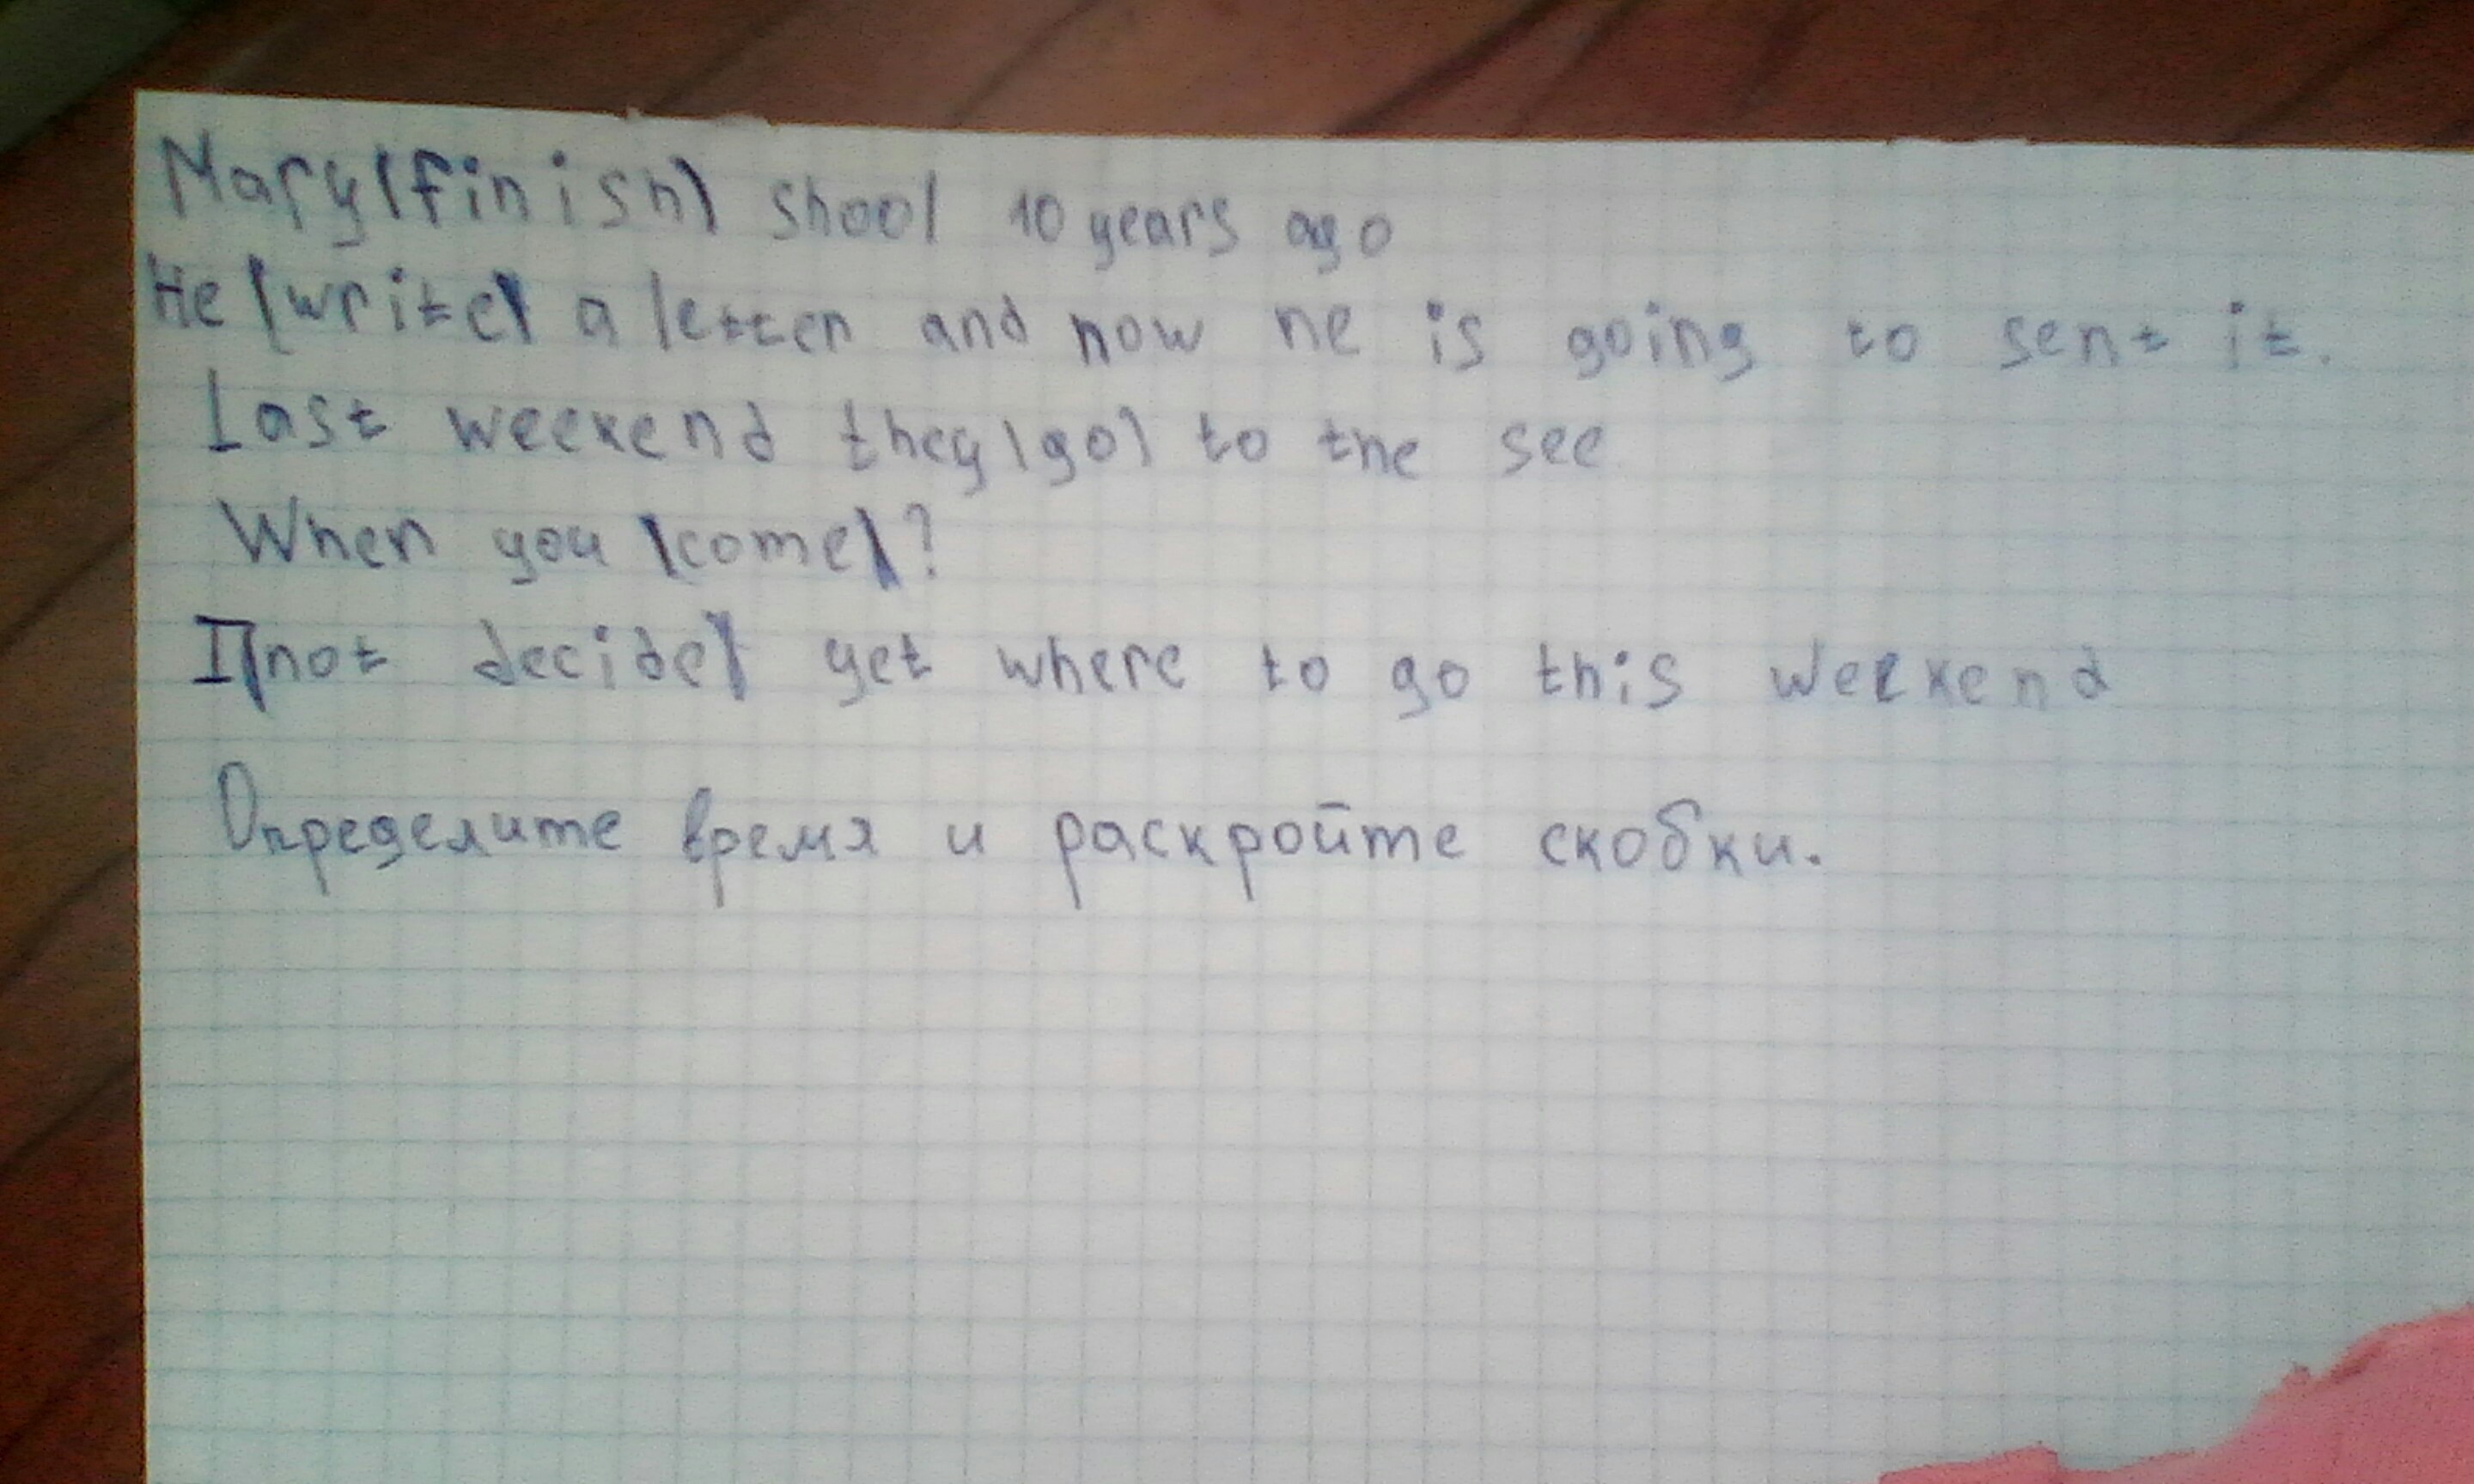 Mary (finish) shool 10 years ago
He (write) a letter and now he is going to sent it.
Last weekend they (go) to the see
When you (come)?
I (not decide) yet where to go this weekend
Определите время и раскройте скобки.